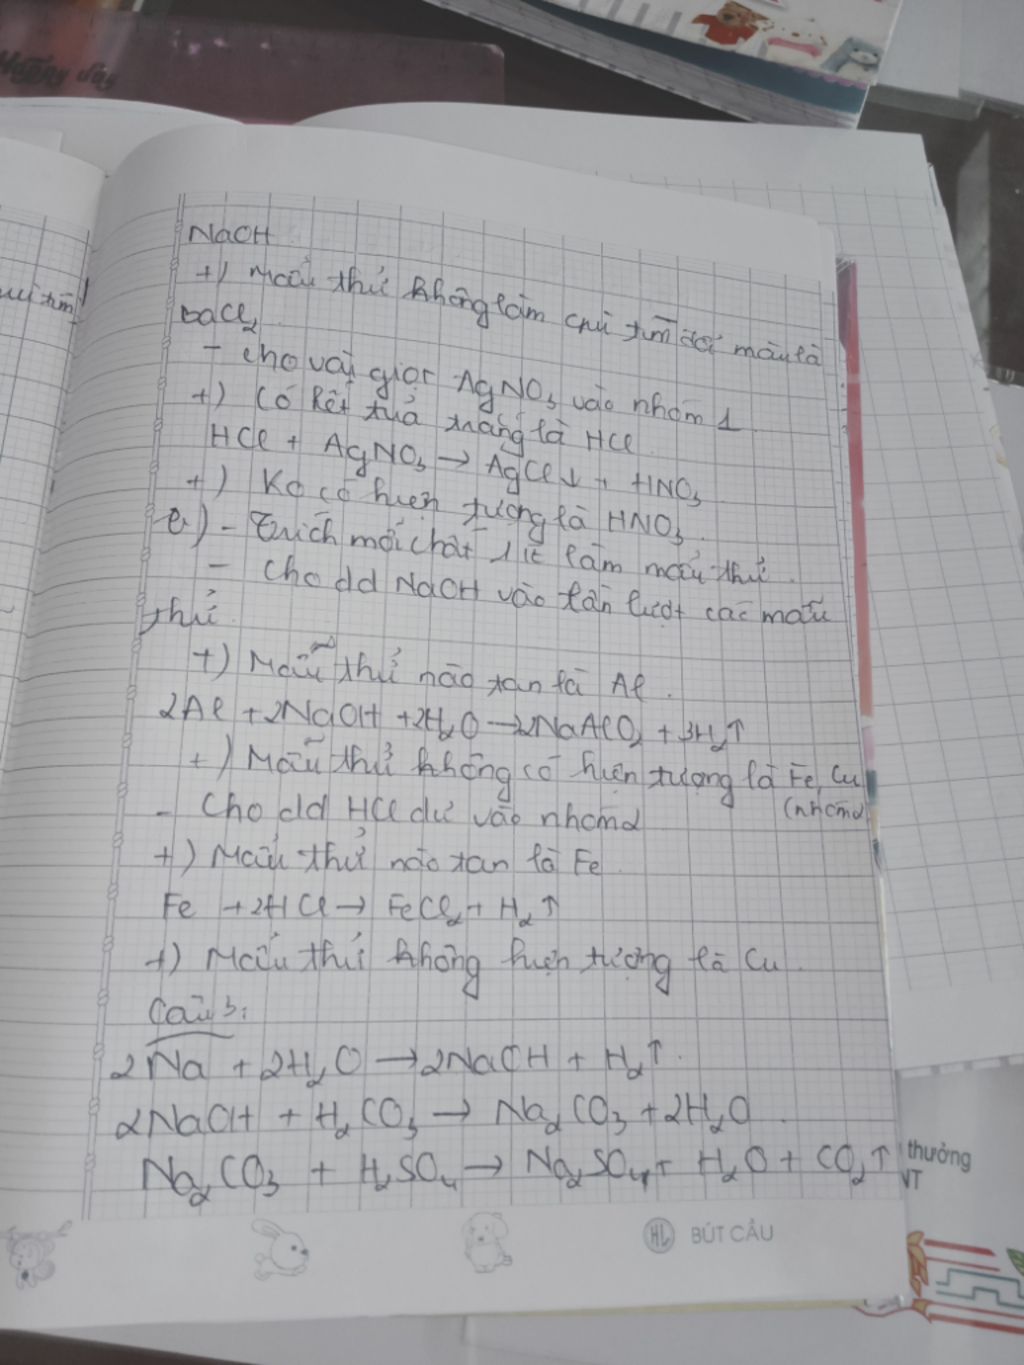 NaOH
+) Mẫu thử không làm quì tím đổi màu là
BaCl₂
- Cho vài giọt AgNO₃ vào nhóm 1
+) Có kết tủa trắng là HCl
HCl + AgNO₃ → AgCl↓ + HNO₃
+) Ko có hiện tượng là HNO₃
- Trích mỗi chất 1 ít làm mẫu thử.
- Cho dd NaOH vào lần lượt các mẫu
thử.
+) Mẫu thử nào tan là Al.
2Al + 2NaOH + 2H₂O → 2NaAlO₂ + 3H₂↑
+) Mẫu thử không có hiện tượng là Fe, Cu
(nhóm 2
- Cho dd HCl dư vào nhóm 2
+) Mẫu thử nào tan là Fe
Fe + 2HCl → FeCl₂ + H₂↑
+) Mẫu thử không hiện tượng là Cu.
Câu 3:
2Na + 2H₂O → 2NaOH + H₂↑.
2NaOH + H₂CO₃ → Na₂CO₃ + 2H₂O.
Na₂CO₃ + H₂SO₄ → Na₂SO₄ + H₂O + CO₂↑
HL BÚT CẦU
thưởng